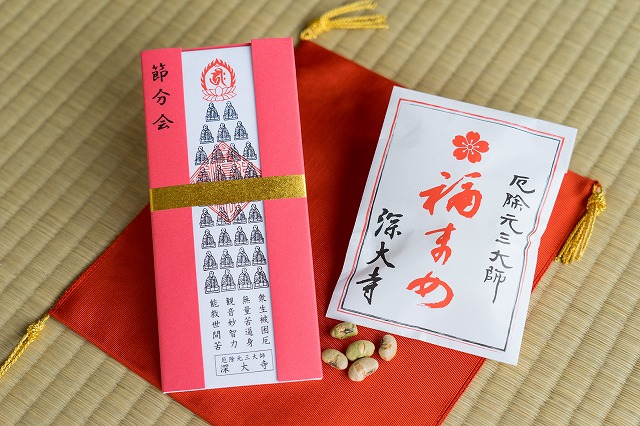 節分会
衆生被困厄
無量苦逼身
觀音妙智力
能救世間苦
厄除元三大師
深大寺
厄除元三大師
福まめ
深大寺